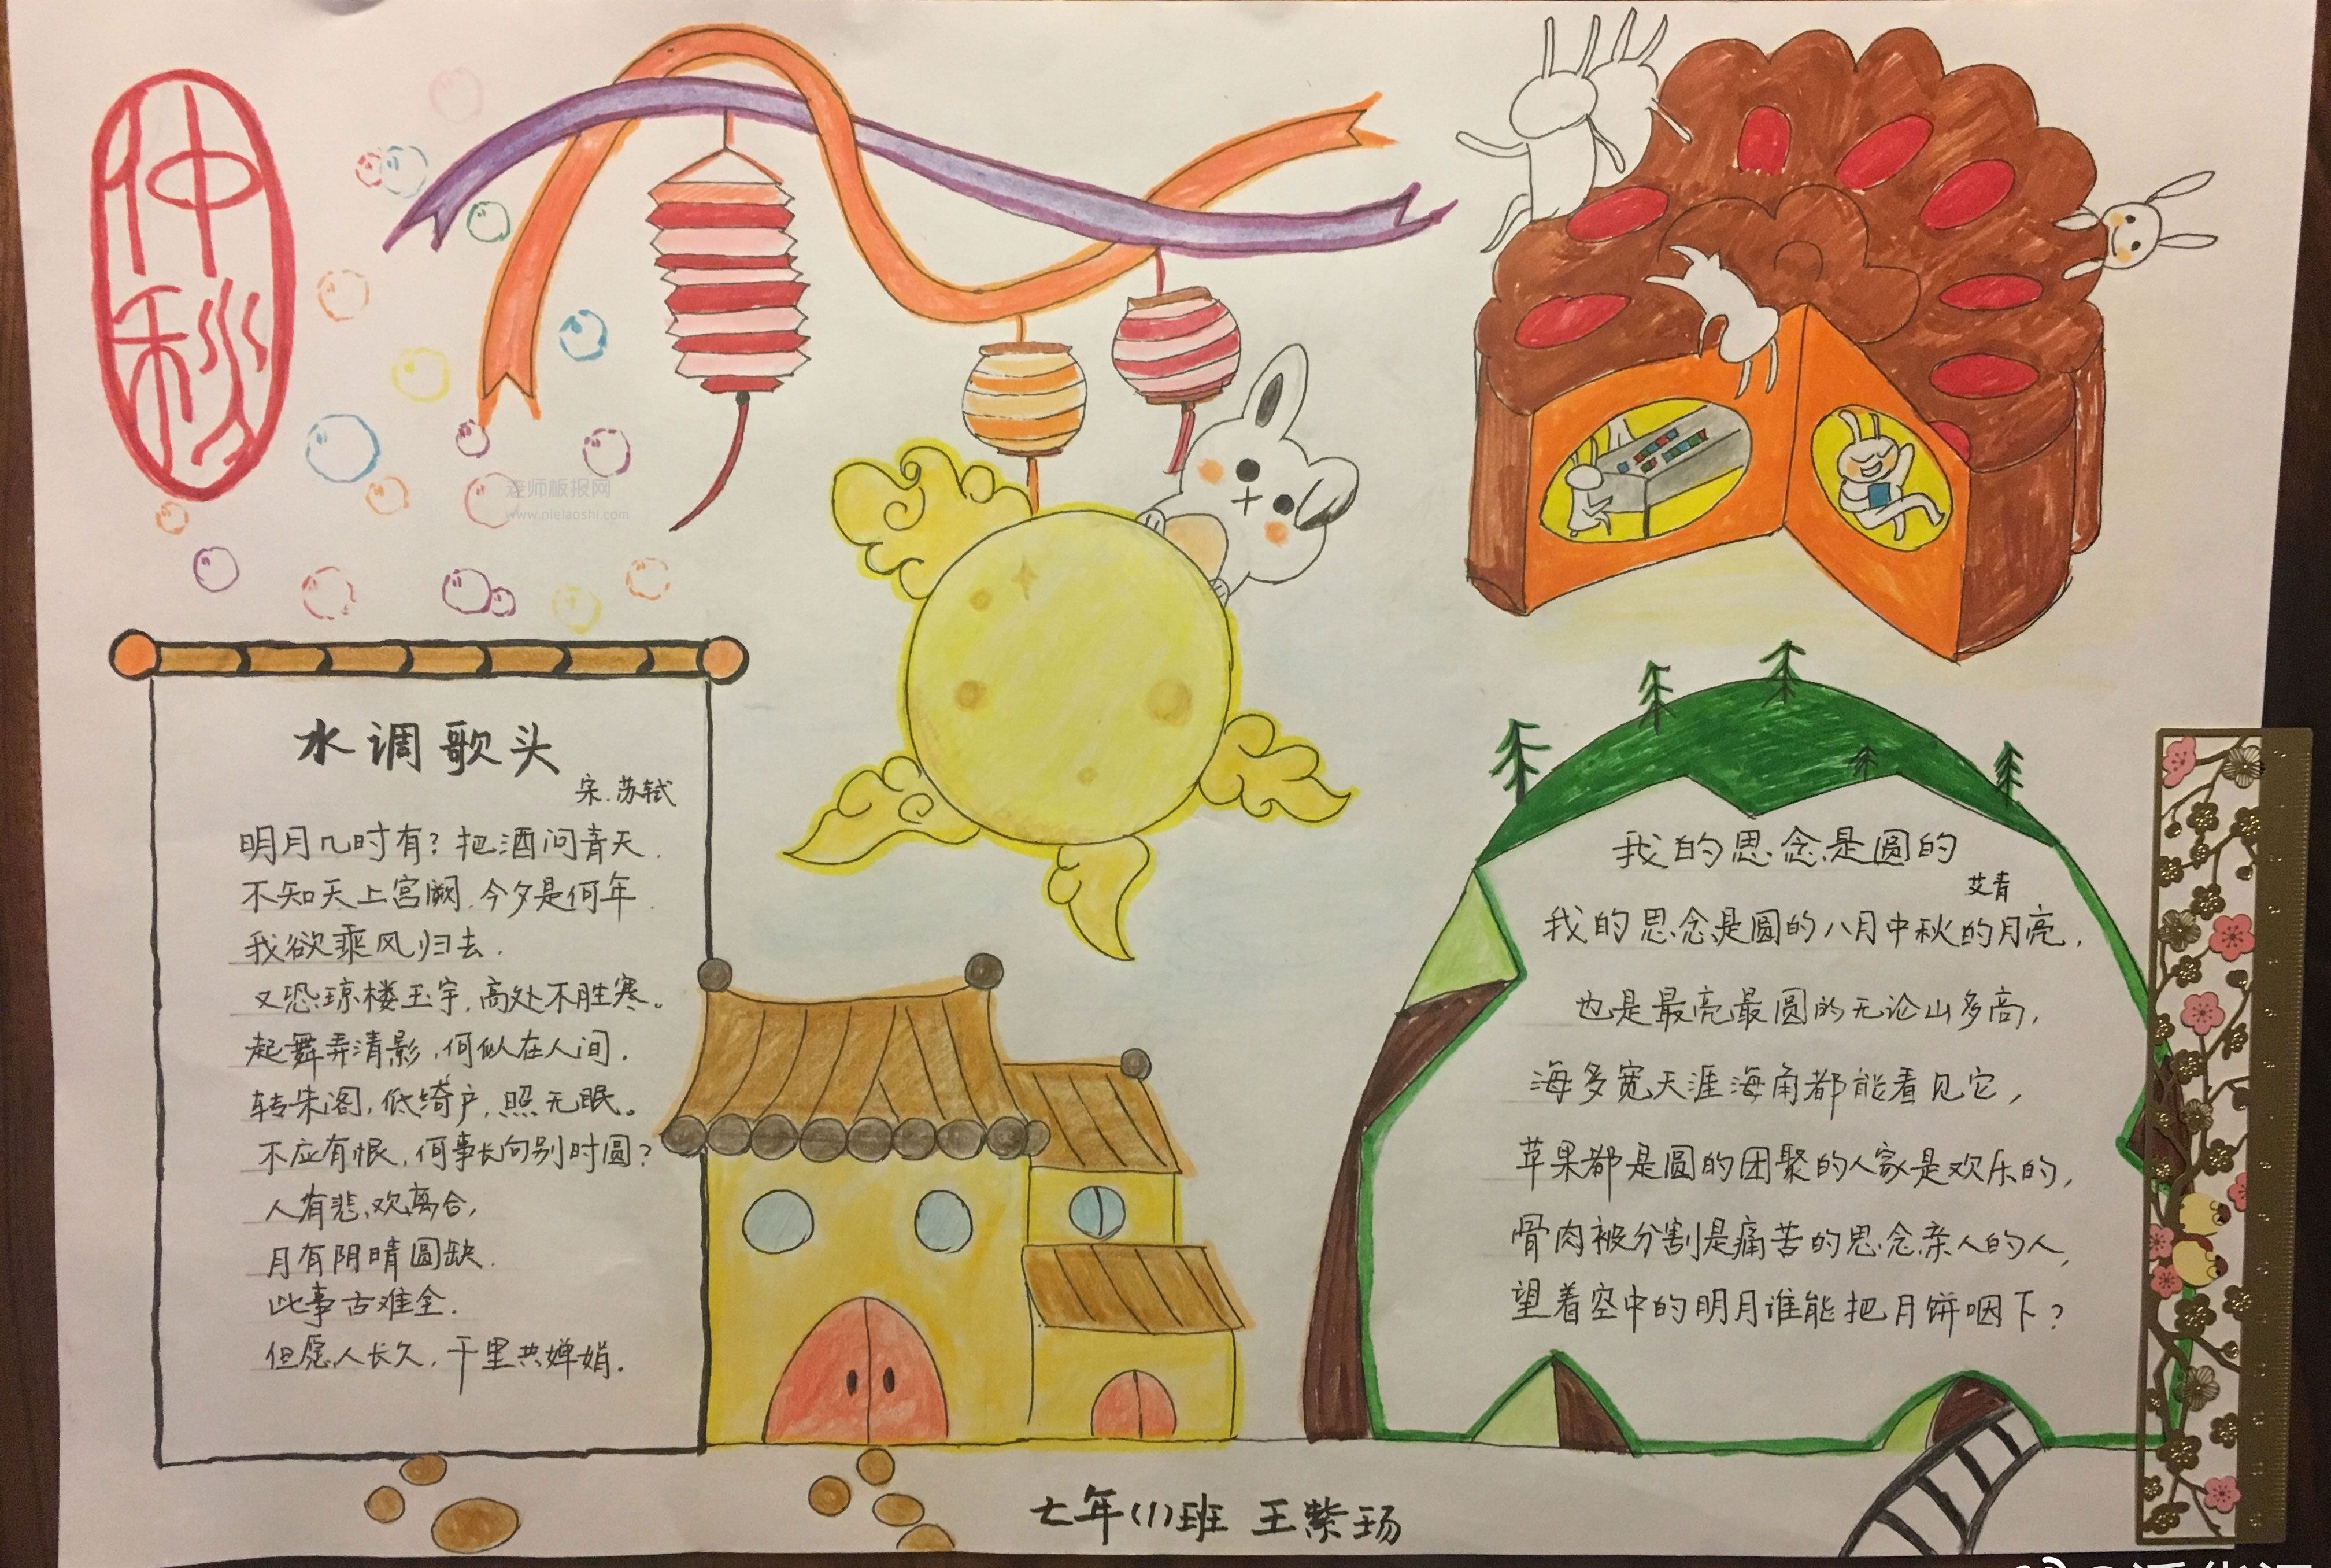 仲秋
老师板报网
www.nielaoshi.com
水调歌头
宋.苏轼
明月几时有?把酒问青天.
不知天上宫阙,今夕是何年.
我欲乘风归去.
又恐琼楼玉宇,高处不胜寒。
起舞弄清影,何似在人间.
转朱阁,低绮户,照无眠。
不应有恨,何事长向别时圆?
人有悲欢离合,
月有阴晴圆缺.
此事古难全.
但愿人长久,千里共婵娟.
我的思念是圆的
艾青
我的思念是圆的八月中秋的月亮,
也是最亮最圆的无论山多高,
海多宽天涯海角都能看见它,
苹果都是圆的团聚的人家是欢乐的,
骨肉被分割是痛苦的思念亲人的人,
望着空中的明月谁能把月饼咽下?
七年(1)班 王紫玚